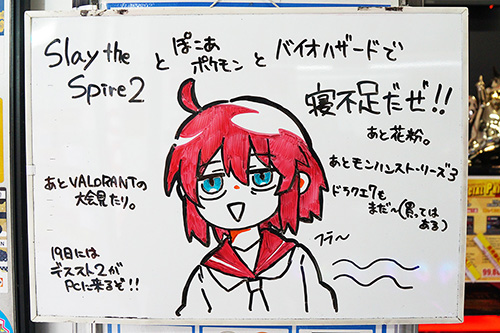 Slay the
Spire2
と
ぽこあ
ポケモン
と
バイオハザードで
寝不足だぜ!!
あと花粉。
あとモンハンストーリーズ3
ドラクエ7も
まだ〜(買ってはある)
フラ〜
あとVALORANTの
大会見たり。
19日には
デススト2が
PCに来るぞ!!